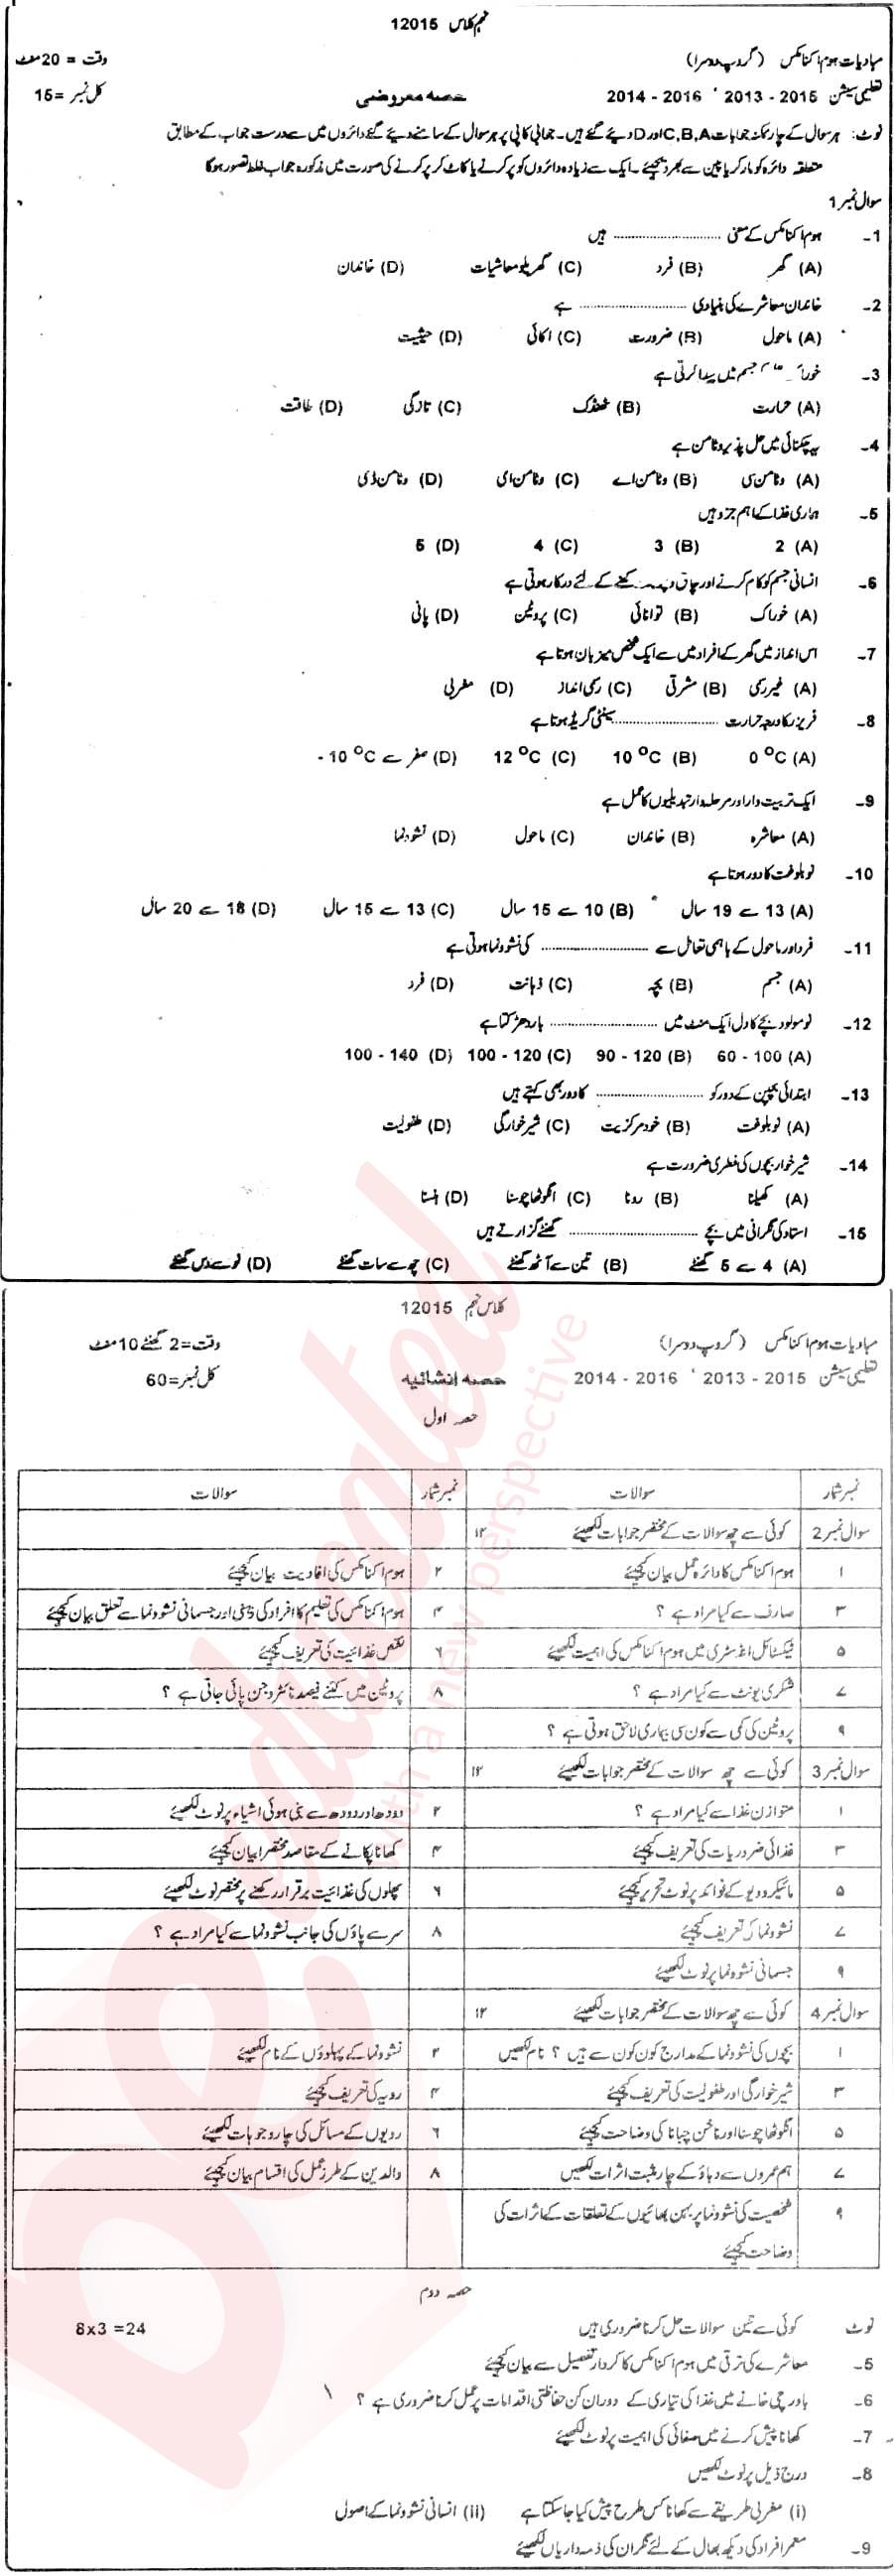 نہم کلاس 12015
مبادیات ہوم اکنامکس (گروپ دوسرا) وقت = 20 منٹ
تعلیمی سیشن 2015 - 2013 ' 2016 - 2014 حصہ معروضی کل نمبر = 15
نوٹ: ہر سوال کے چار ممکنہ جوابات C,B,A اور D دیے گئے ہیں۔ جوابی کاپی پر ہر سوال کے سامنے دیے گئے دائروں میں سے درست جواب کے مطابق
متعلقہ دائرہ کو مارکر یا پین سے بھر دیجئے۔ ایک سے زیادہ دائروں کو پر کرنے یا کاٹ کر پر کرنے کی صورت میں مذکورہ جواب غلط تصور ہوگا
سوال نمبر 1
1- ہوم اکنامکس کے معنی .......................... ہیں
(A) گھر (B) فرد (C) گھریلو معاشیات (D) خاندان
2- خاندان معاشرے کی بنیادی .......................... ہے
(A) ماحول (B) ضرورت (C) اکائی (D) حیثیت
3- جسم میں پیدا کرتی ہے
(A) حرارت (B) ٹھنڈک (C) تازگی (D) طاقت
4- یہ چکنائی میں حل پذیر وٹامن ہے
(A) وٹامن سی (B) وٹامن اے (C) وٹامن ای (D) وٹامن ڈی
5- ہماری غذا کے اہم جزو ہیں
(A) 2 (B) 3 (C) 4 (D) 5
6- انسانی جسم کو کام کرنے اور چاق و رکھنے کے لئے درکار ہوتی ہے
(A) خوراک (B) توانائی (C) پروٹین (D) پانی
7- اس انداز میں گھر کے افراد میں سے ایک شخص میزبان ہوتا ہے
(A) غیر رسمی (B) مشرقی (C) رسمی انداز (D) مغربی
8- فریزر کا درجہ حرارت .......................... سینٹی گریڈ ہوتا ہے
(A) 0 °C (B) 10 °C (C) 12 °C (D) صفر سے 10 °C -
9- ایک تربیت وار اور مرحلہ وار تبدیلیوں کا عمل ہے
(A) معاشرہ (B) خاندان (C) ماحول (D) نشوونما
10- نوبلوغت کا دور ہوتا ہے
(A) 13 سے 19 سال (B) 10 سے 15 سال (C) 13 سے 15 سال (D) 18 سے 20 سال
11- فرد اور ماحول کے باہمی تعامل سے .......................... کی نشوونما ہوتی ہے
(A) جسم (B) بچہ (C) ذہانت (D) فرد
12- نومولود بچے کا دل ایک منٹ میں .......................... بار دھڑکتا ہے
(A) 60 - 100 (B) 90 - 120 (C) 100 - 120 (D) 100 - 140
13- ابتدائی بچپن کے دور کو .......................... کا دور بھی کہتے ہیں
(A) نوبلوغت (B) خود مرکزیت (C) شیر خوارگی (D) طفولیت
14- شیر خوار بچوں کی فطری ضرورت ہے
(A) کھیلنا (B) رونا (C) انگوٹھا چوسنا (D) ہنسنا
15- استاد کی نگرانی میں بچے .......................... گھنٹے گزارتے ہیں
(A) 4 سے 5 گھنٹے (B) تین سے آٹھ گھنٹے (C) چھ سے سات گھنٹے (D) نو سے دس گھنٹے
کلاس نہم 12015
مبادیات ہوم اکنامکس (گروپ دوسرا) وقت = 2 گھنٹے 10 منٹ
تعلیمی سیشن 2015 - 2013 ' 2016 - 2014 حصہ انشائیہ کل نمبر = 60
حصہ اول
نمبر شمار سوالات نمبر شمار سوالات
سوال نمبر 2 کوئی سے چھ سوالات کے مختصر جوابات لکھیئے ۱۲
۱ ہوم اکنامکس کا دائرہ عمل بیان کیجئے ۲ ہوم اکنامکس کی افادیت بیان کیجئے
۳ صارف سے کیا مراد ہے ؟ ۴ ہوم اکنامکس کی تعلیم کا افراد کی ذہنی اور جسمانی نشوونما سے تعلق بیان کیجئے
۵ ٹیکسٹائل انڈسٹری میں ہوم اکنامکس کی اہمیت لکھیئے ۶ نقص غذائیت کی تعریف کیجئے
۷ شکری یونٹ سے کیا مراد ہے ؟ ۸ پروٹین میں کتنے فیصد نائٹروجن پائی جاتی ہے ؟
۹ پروٹین کی کمی سے کون سی بیماری لاحق ہوتی ہے ؟
سوال نمبر 3 کوئی سے چھ سوالات کے مختصر جوابات لکھیئے ۱۲
۱ متوازن غذا سے کیا مراد ہے ؟ ۲ دودھ اور دودھ سے بنی ہوئی اشیاء پر نوٹ لکھیئے
۳ غذائی ضروریات کی تعریف کیجئے ۴ کھانا پکانے کے مقاصد مختصرا بیان کیجئے
۵ مائیکروویو کے فوائد پر نوٹ تحریر کیجئے ۶ پھلوں کی غذائیت برقرار رکھنے پر مختصر نوٹ لکھیئے
۷ نشوونما کی تعریف کیجئے ۸ سر سے پاؤں کی جانب نشوونما سے کیا مراد ہے ؟
۹ جسمانی نشوونما پر نوٹ لکھیئے
سوال نمبر 4 کوئی سے چھ سوالات کے مختصر جوابات لکھیئے ۱۲
۱ بچوں کی نشوونما کے مدارج کون کون سے ہیں ؟ نام لکھیں ۲ نشوونما کے پہلوؤں کے نام لکھیئے
۳ شیر خوارگی اور طفولیت کی تعریف کیجئے ۴ رویہ کی تعریف کیجئے
۵ انگوٹھا چوسنا اور ناخن چبانا کی وضاحت کیجئے ۶ رویوں کے مسائل کی چار وجوہات لکھیئے
۷ ہم عمروں سے دباؤ کے چار مثبت اثرات لکھیں ۸ والدین کے طرز عمل کی اقسام بیان کیجئے
۹ شخصیت کی نشوونما پر بہن بھائیوں کے تعلقات کے اثرات کی
وضاحت کیجئے
حصہ دوم
نوٹ کوئی سے تین سوالات حل کرنا ضروری ہیں 8x3 =24
5- معاشرے کی ترقی میں ہوم اکنامکس کا کردار تفصیل سے بیان کیجئے
6- باورچی خانے میں غذا کی تیاری کے دوران کن حفاظتی اقدامات پر عمل کرنا ضروری ہے ؟
7- کھانا پیش کرنے میں صفائی کی اہمیت پر نوٹ لکھیئے
8- درج ذیل پر نوٹ لکھیں
(i) مغربی طریقے سے کھانا کس طرح پیش کیا جا سکتا ہے (ii) انسانی نشوونما کے اصول
9- معمر افراد کی دیکھ بھال کے لئے نگران کی ذمہ داریاں لکھیئے
beeducated
with a new perspective